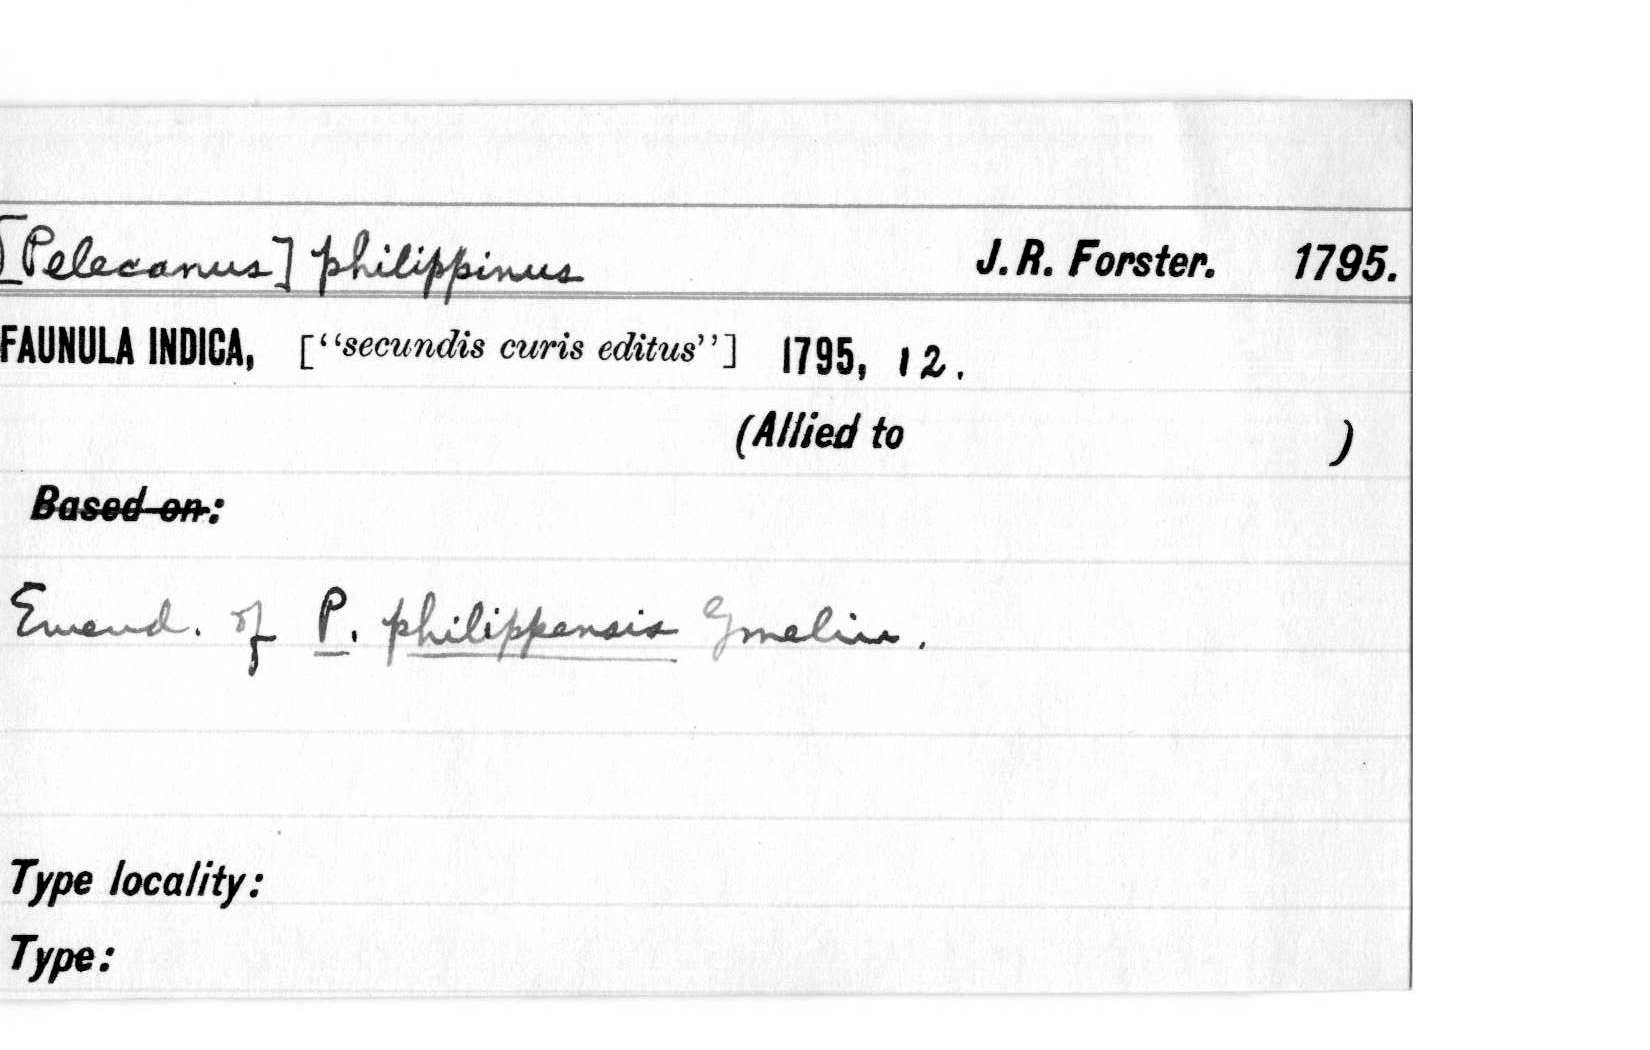 [Pelecanus] philippinus J. R. Forster. 1795.
FAUNULA INDICA, ["secundis curis editus"] 1795, 12.
(Allied to )
Based on:
Emend. of P. philippensis Gmelin.
Type locality:
Type: